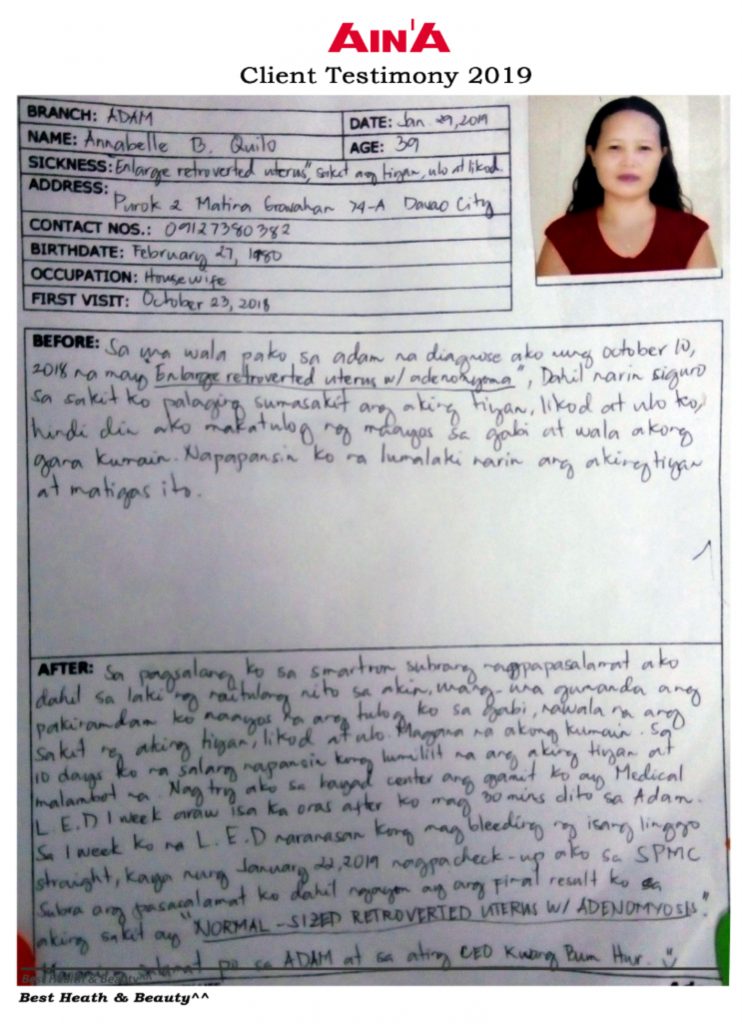 AIN'A
Client Testimony 2019
BRANCH: ADAM
DATE: Jan. 29, 2019
NAME: Annabelle B. Quilo
AGE: 39
SICKNESS: Enlarge retroverted uterus", sakit ang tiyan, ulo at likod.
ADDRESS:
Purok 2 Matina Gravahan 74-A Davao City
CONTACT NOS.: 09127380382
BIRTHDATE: February 27, 1980
OCCUPATION: Housewife
FIRST VISIT: October 23, 2018
BEFORE: Sa una wala pako sa adam na diagnose ako nung october 10,
2018 na may "Enlarge retroverted uterus w/ adenomyoma", Dahil narin siguro
sa sakit ko palaging sumasakit ang aking tiyan, likod at ulo ko,
hindi din ako makatulog ng maayos sa gabi at wala akong
gana kumain. Napapansin ko na lumalaki narin ang aking tiyan
at matigas ito.
AFTER: Sa pagsalang ko sa smartron subrang nagpapasalamat ako
dahil sa laki ng naitulong nito sa akin, unang-una gumanda ang
pakiramdam ko naayos na ang tulog ko sa gabi, nawala na ang
sakit ng aking tiyan, likod at ulo. Magana na akong kumain. Sa
10 days ko na salang napansin kong lumiliit na ang aking tiyan at
malambot na. Nag try ako sa center ang gamit ko ay Medical
L.E.D 1 week araw isa ka oras after ko mag 30 mins dito sa Adam.
Sa 1 week ko na L.E.D naranasan kong mag bleeding ng isang linggo
straight, kaya nung January 22, 2019 nagpacheck-up ako sa SPMC
Subra ang pasasalamat ko dahil ngayon ay ang final result ko sa
aking sakit ay "NORMAL-SIZED RETROVERTED UTERUS W/ ADENOMYOSIS".
Maraming salamat po sa ADAM at sa ating CEO Kwang Bum Hur.
Best Health & Beauty^^
Best Heath & Beauty^^